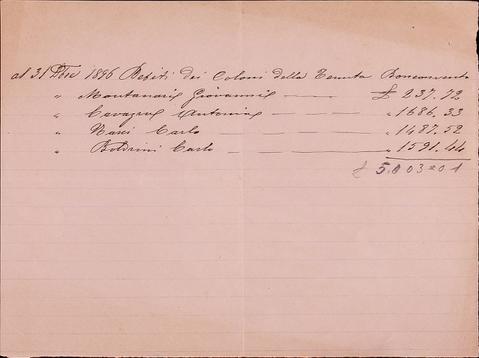 al 31 Dbre 1896 Debiti dei Coloni della Tenuta Bonconvento
" Montanari Giovanni — £ 237.72
" Cavazza Antonio — " 1686.33
" Naldi Carlo — " 1487.52
" Boldrini Carlo — — " 1591.44
£ 5.003=01